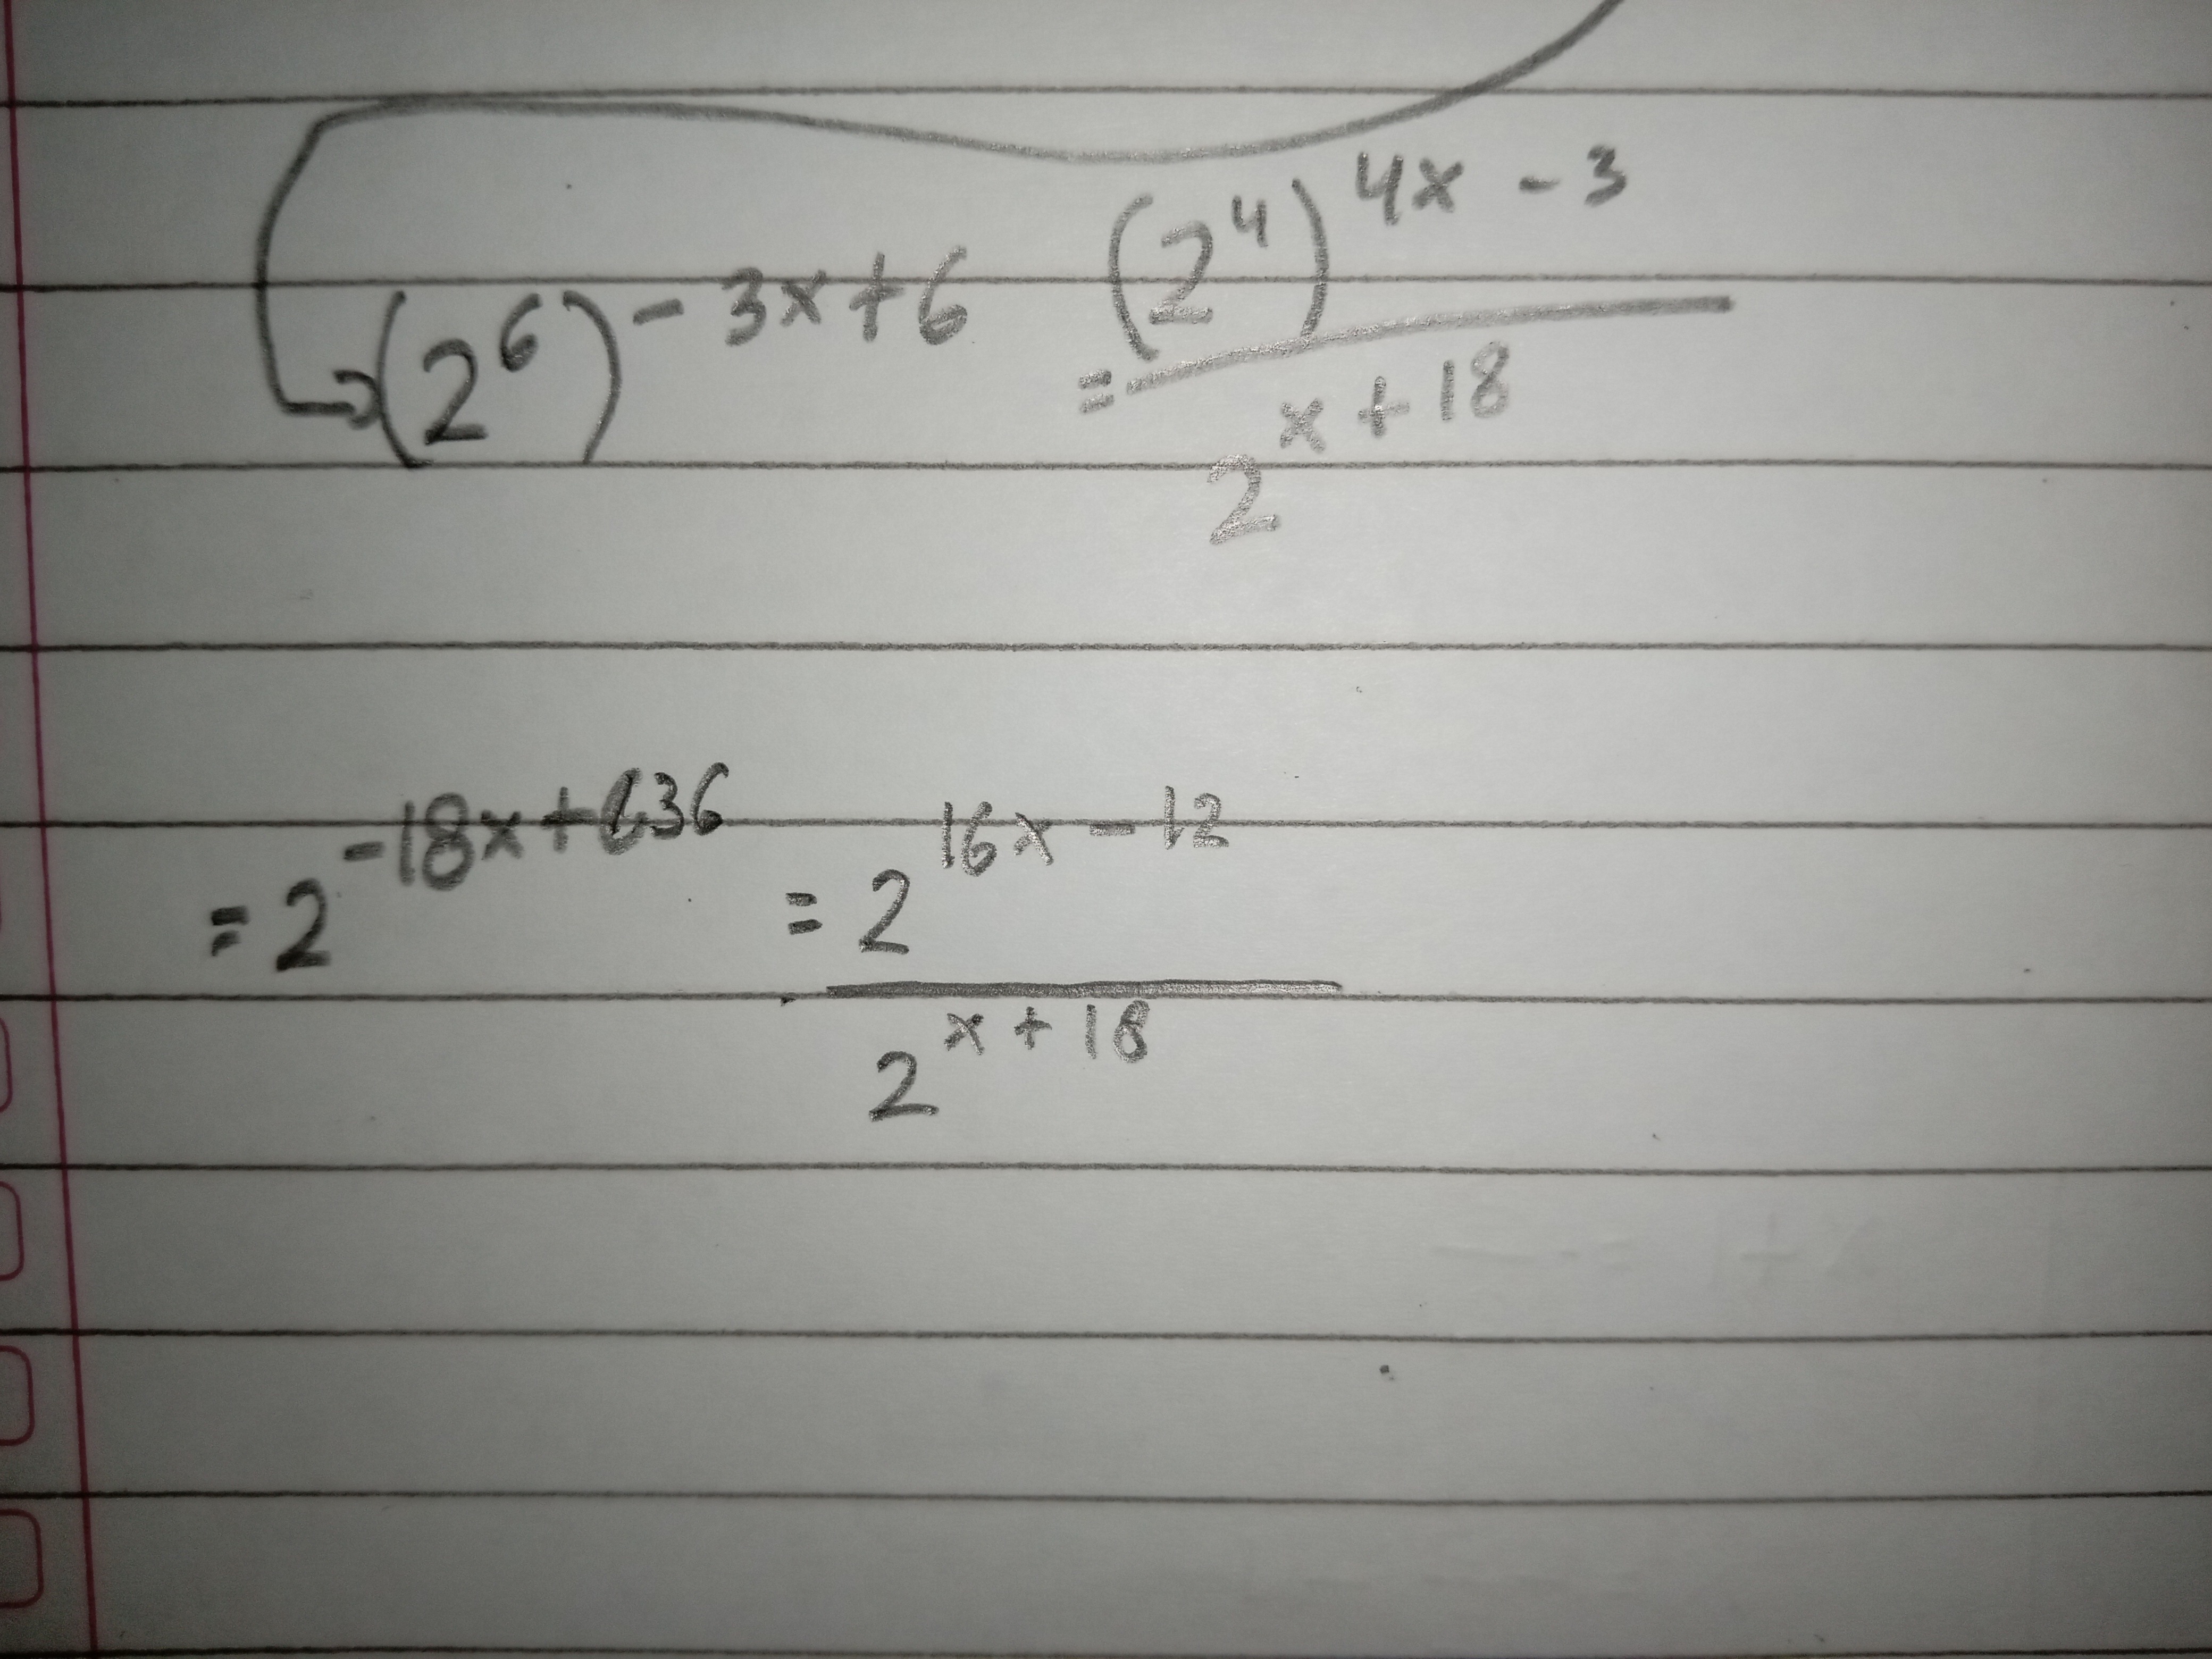 (2^6)^{-3x+6} = \frac{(2^4)^{4x-3}}{2^{x+18}}
= 2^{-18x+36} = \frac{2^{16x-12}}{2^{x+18}}